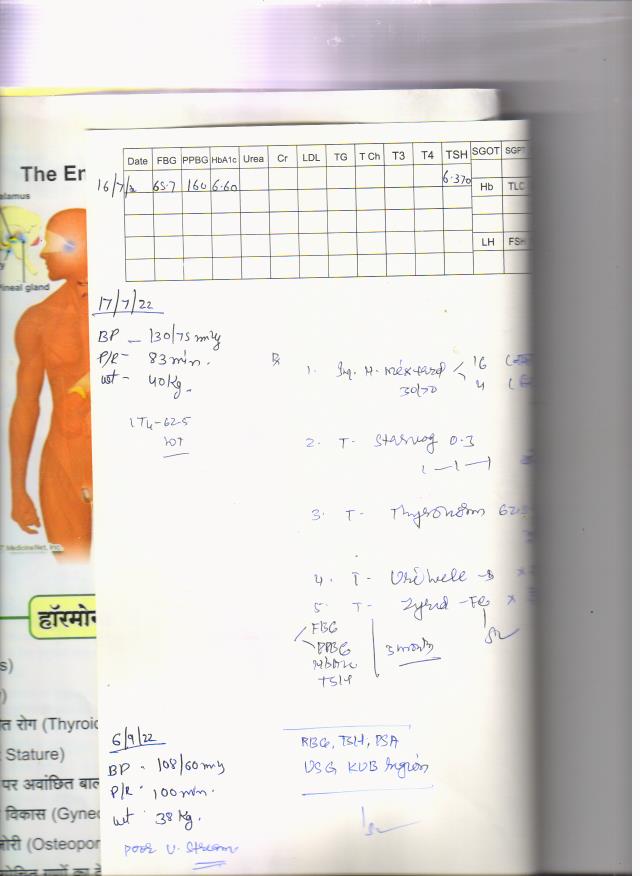 The En
alamus
y
Pineal gland
MedicineNet, Inc.
हॉरमोन
s)
)
त रोग (Thyroid
Stature)
पर अवांछित बाल
विकास (Gynec
ोरी (Osteopor
Date FBG PPBG HbA1c Urea Cr LDL TG T Ch T3 T4 TSH SGOT SGPT
16/7/ 65.7 160 6.60 6.370 Hb TLC
LH FSH
17/7/22
BP - 130/75
P/R - 83 min.
wt - 40 Kg.
LT4 - 62.5
1. Inj. H. Mixtard 16
30/70 4
2. T - Starvog 0.3
1-1-1
3. T - Thyronorm 62.5
4. T -
5. T -
FBG
PPBG
HbA1c
TSH
3 months
6/9/22
BP - 108/60
P/R - 100 min.
wt - 38 Kg.
Poor U. Stream
RBG, TSH, PSA
USG KUB Region